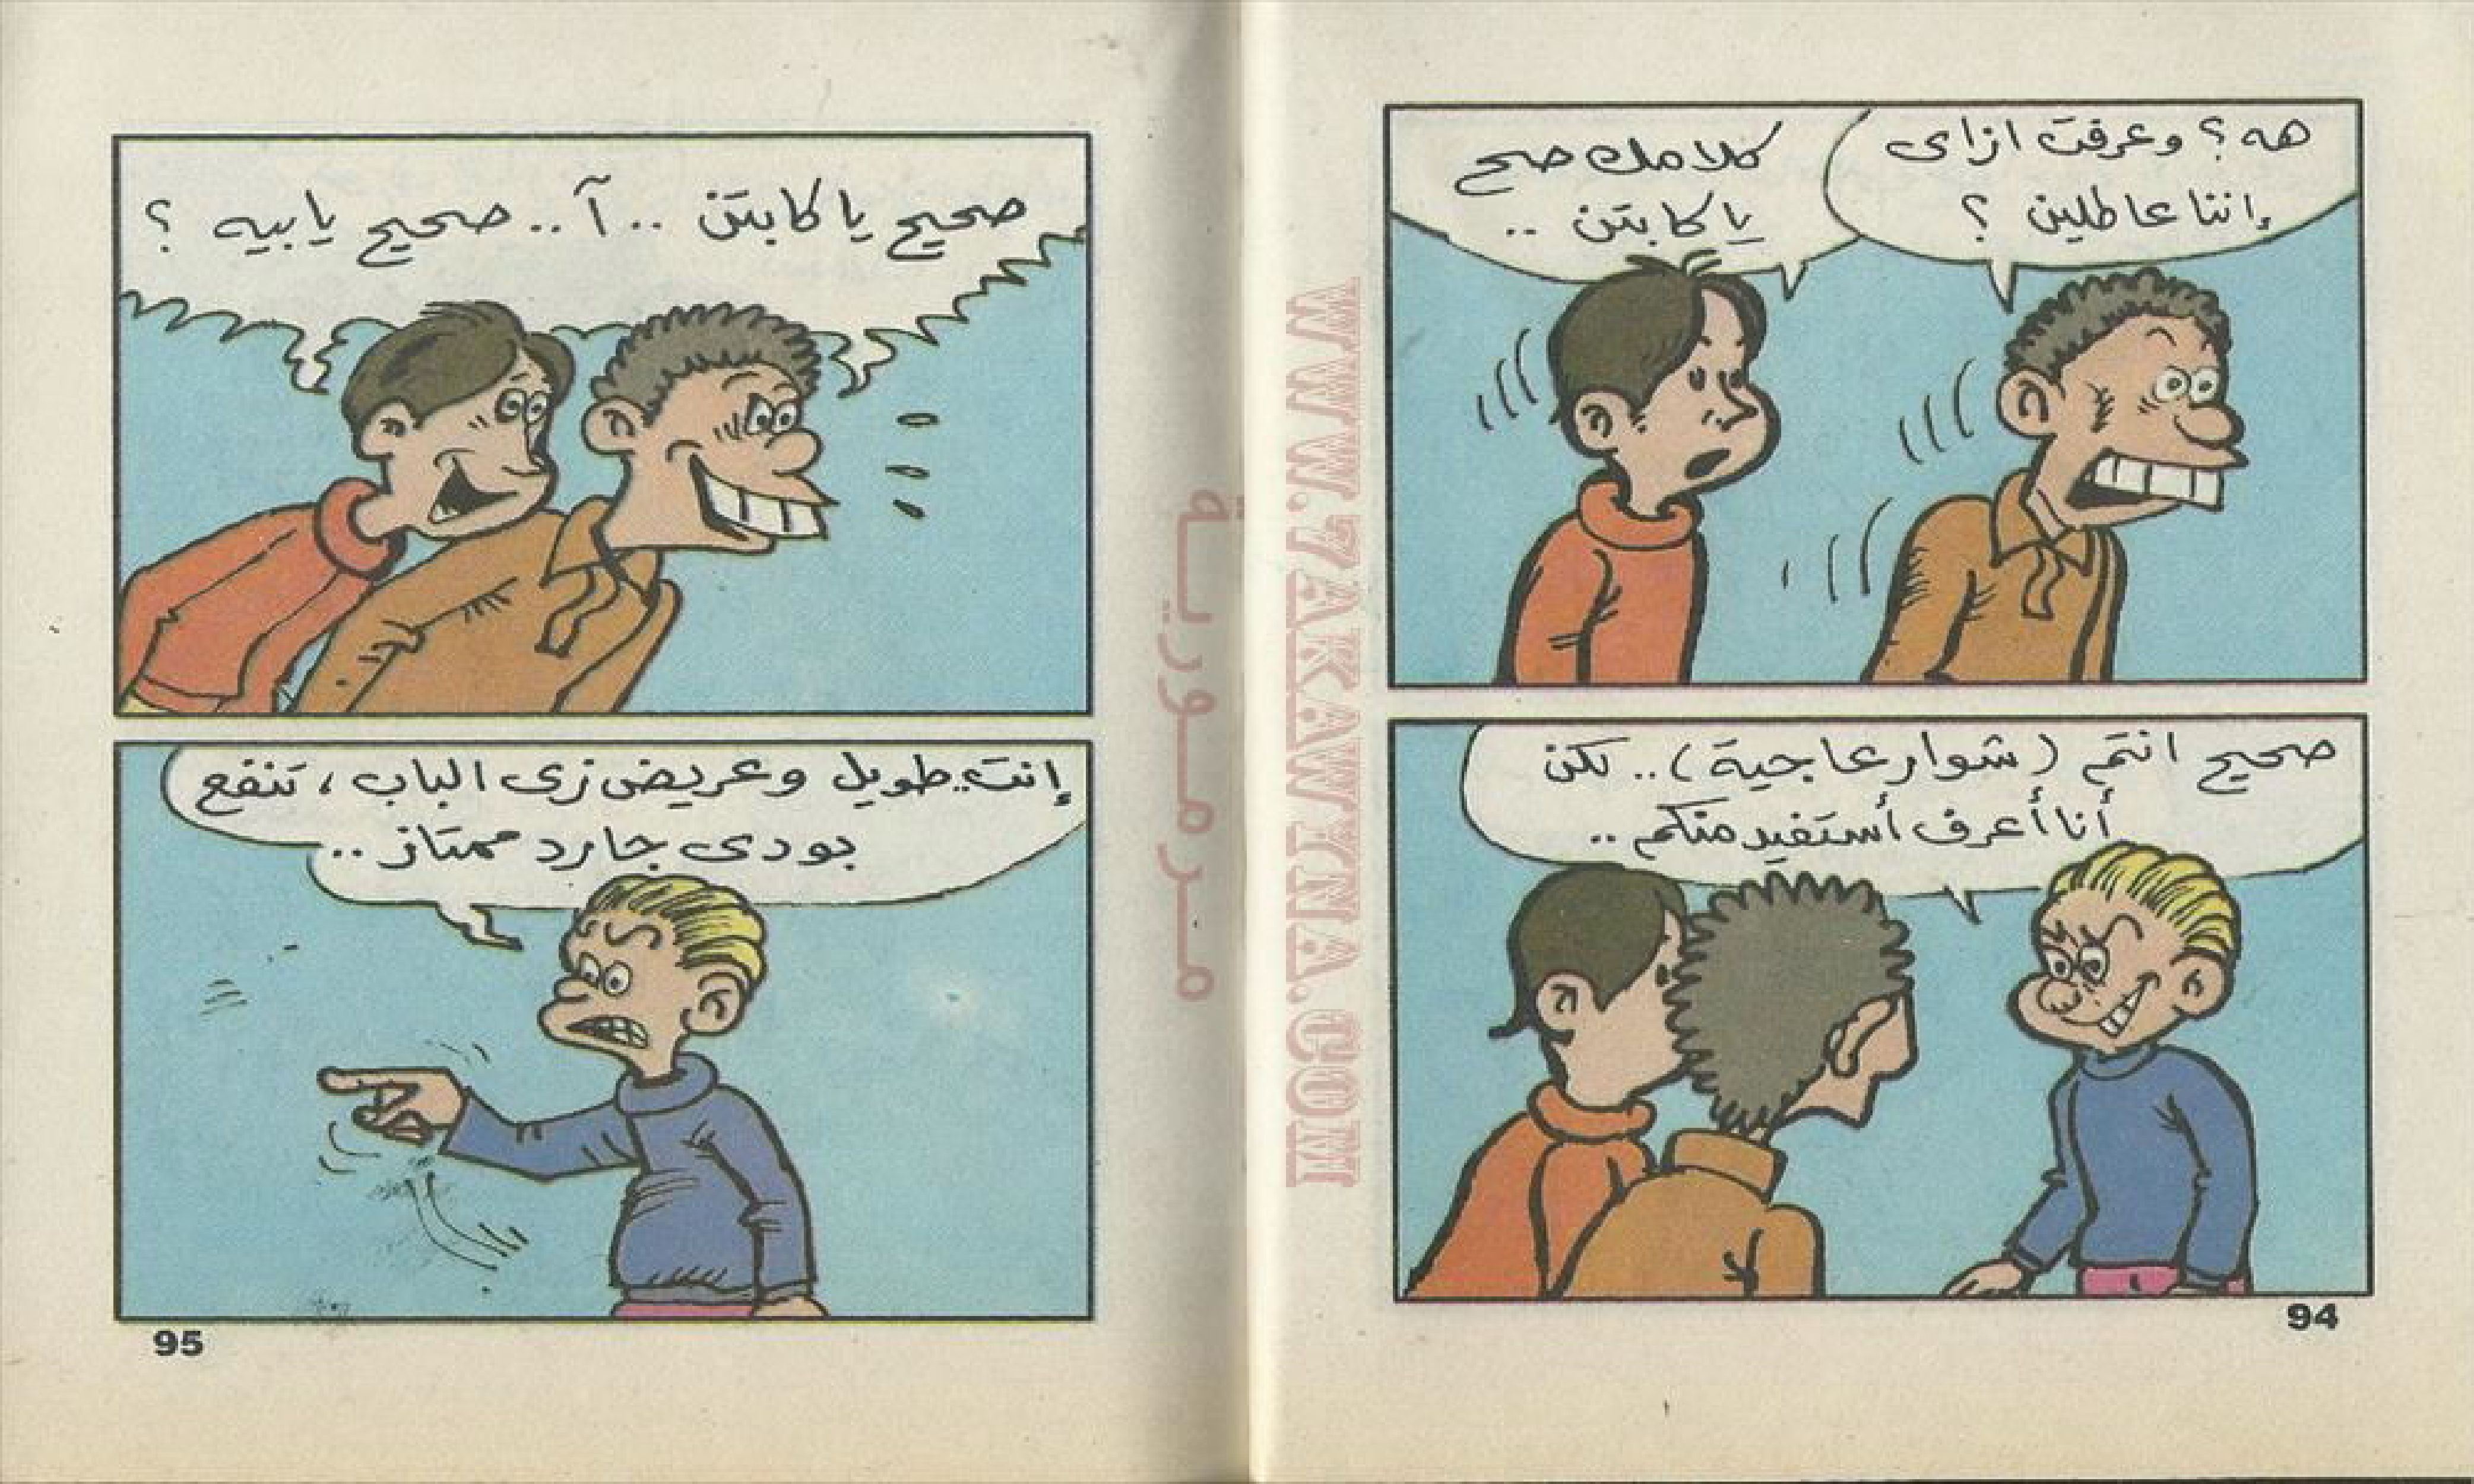 هه؟ وعرفت ازاى
إننا عاطلين؟
كلامك صح
يا كابتن ..
صحيح انتم (شوارعاجية) .. لكن
أنا أعرف أستفيد منكم ..
94
صحيح يا كابتن .. آ .. صحيح يا بيه ؟
إنت .. طويل وعريض زى الباب ، تنفع
بودى جارد ممتاز ..
95
WWW.7AKAWINA.COM
مرمورية